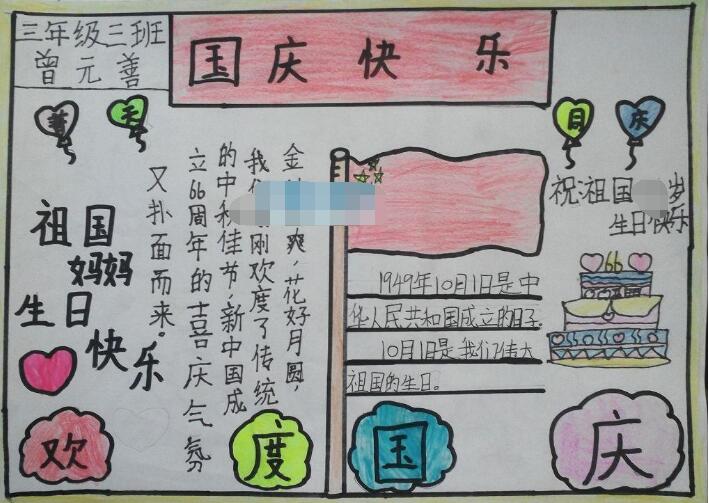 三年级三班
曾元善
国庆快乐
普天
同庆
祖国
妈妈
生日
快乐
金
爽,花好月圆,
我
刚欢度了传统
的中秋佳节,新中国成
立66周年的喜庆气氛
又扑面而来。
1949年10月1日是中
华人民共和国成立的日子。
10月1日是我们伟大
祖国的生日。
祝:祖国
岁
生日快乐
66
欢度国庆